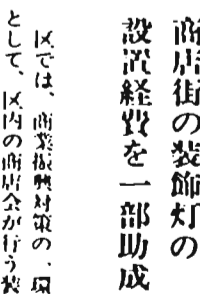 商店街の装飾灯の
設置経費を一部助成
区では、商業振興対策の、環
として、区内の商店会が行う装